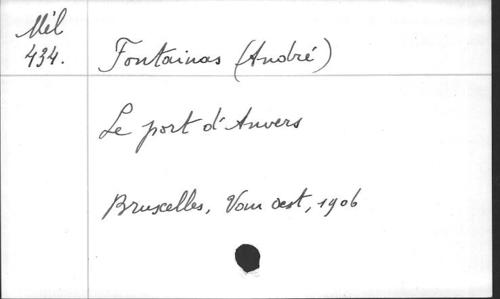 Mél
434.
Fontainas (André)
Le port d'Anvers
Bruxelles, Vom oest, 1906